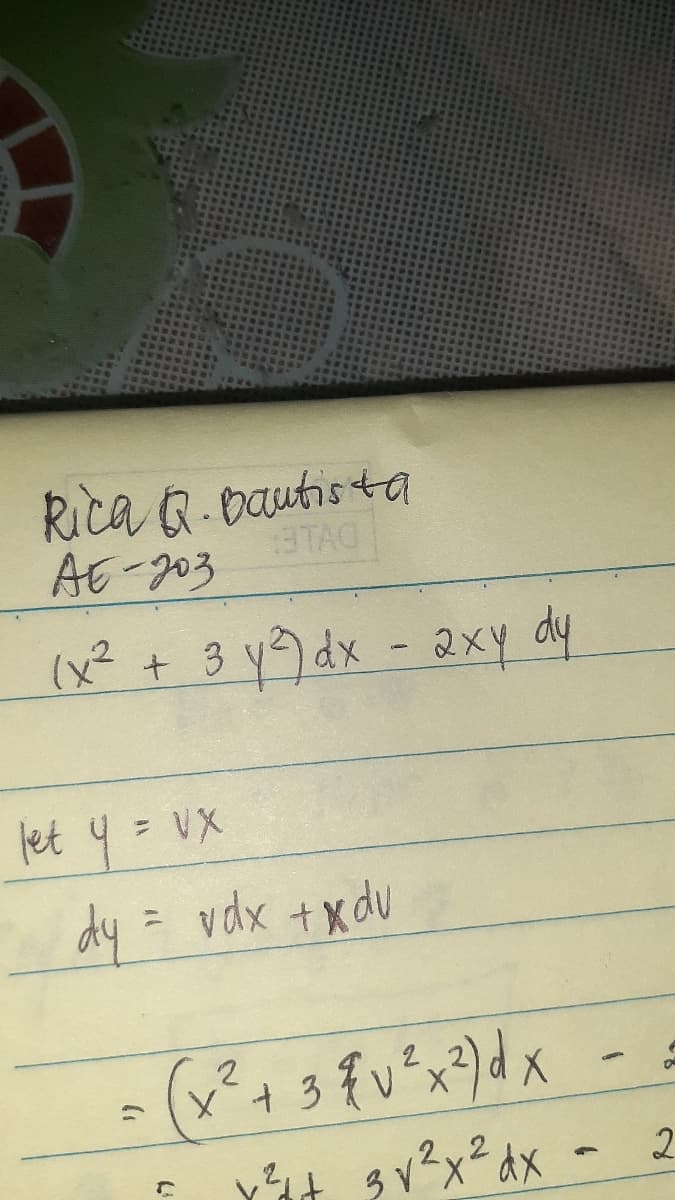 Rica Q. Bautista
DATE:
AE-203
(x² + 3 y²) dx - 2xy dy
let y = vx
dy = vdx + xdv
= (x² + 3 v²x²) dx -
= x² + 3v²x² dx - 2